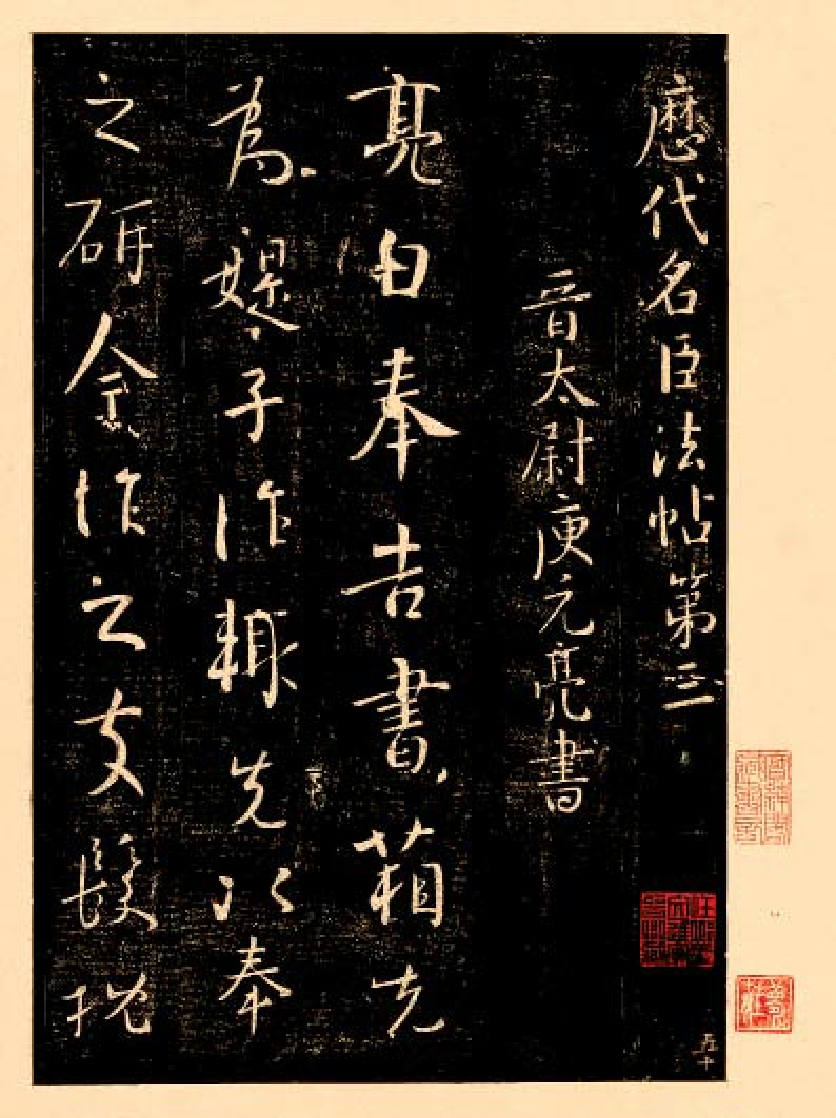 歷代名臣法帖第三
晉太尉庾元亮書
亮白奉告書箱先
為媞子作輙先以奉
之研金作之支髮
五十